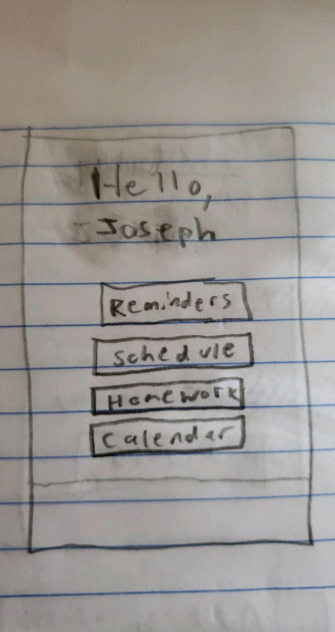 Hello,
Joseph
Reminders
Schedule
Homework
Calender